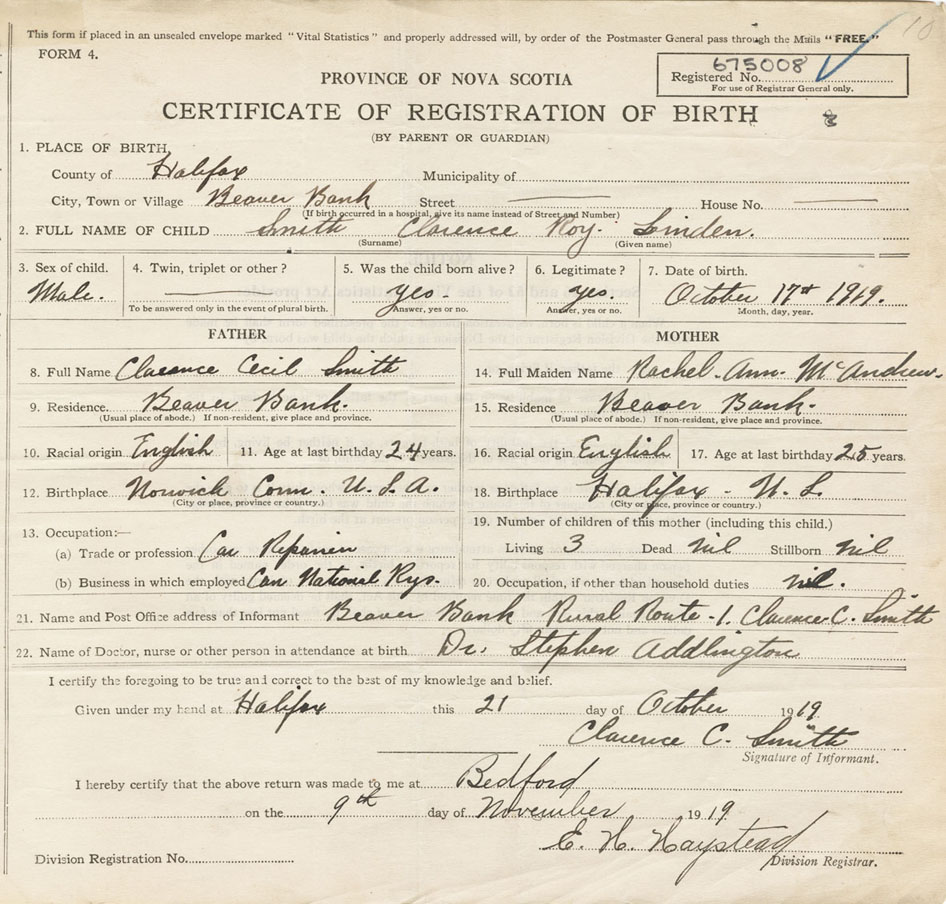 10
This form if placed in an unsealed envelope marked "Vital Statistics" and properly addressed will, by order of the Postmaster General pass through the Mails "FREE."
FORM 4.
675008
Registered No.
For use of Registrar General only.
PROVINCE OF NOVA SCOTIA
CERTIFICATE OF REGISTRATION OF BIRTH
(BY PARENT OR GUARDIAN)
1. PLACE OF BIRTH,
County of Halifax Municipality of
City, Town or Village Beaver Bank Street — House No. —
(If birth occurred in a hospital, give its name instead of Street and Number)
2. FULL NAME OF CHILD Smith Clarence Roy. Linden.
(Surname) (Given name)
3. Sex of child. 4. Twin, triplet or other? 5. Was the child born alive? 6. Legitimate? 7. Date of birth.
Male. — yes- yes. October 17st 1919.
To be answered only in the event of plural birth. Answer, yes or no. Answer, yes or no. Month, day, year.
FATHER MOTHER
8. Full Name Clarence Cecil Smith 14. Full Maiden Name Rachel-Ann-McAndrew-
9. Residence. Beaver Bank. 15. Residence Beaver Bank.
(Usual place of abode.) If non-resident, give place and province. (Usual place of abode.) If non-resident, give place and province.
10. Racial origin English 11. Age at last birthday 24 years. 16. Racial origin English 17. Age at last birthday 25 years.
12. Birthplace Norwich Conn. U.S.A. 18. Birthplace Halifax - N.S.
(City or place, province or country.) (City or place, province or country.)
13. Occupation:— 19. Number of children of this mother (including this child.)
(a) Trade or profession Car Living 3 Dead nil Stillborn nil
(b) Business in which employed Can National Rys. 20. Occupation, if other than household duties nil.
21. Name and Post Office address of Informant Beaver Bank Rural Route -1. Clarence C. Smith
22. Name of Doctor, nurse or other person in attendance at birth Dr. Stephen Addlington
I certify the foregoing to be true and correct to the best of my knowledge and belief.
Given under my hand at Halifax this 21 day of October 1919
Clarence C. Smith
Signature of Informant.
I hereby certify that the above return was made to me at Bedford
on the 9th day of November 1919
E. H. Haystead
Division Registration No. Division Registrar.